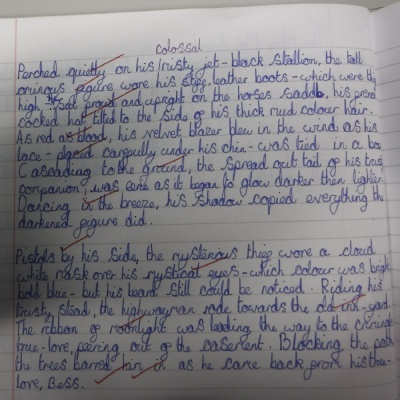 colossal
Perched quietly on his trusty jet-black stallion, the tall
ominous figure wore his stiff leather boots-which were thigh
high, He sat proud and upright on the horses saddle, his proud
cocked hat tilted to the side of his thick mud colour hair.
As red as blood, his velvet blazer blew in the wind as his
lace-placed carefully under his chin-was tied in a bow
Cascading to the ground, the spread out tail of his trusty
companion, was eerie as it began to glow darker then lighter.
Dancing in the breeze, his shadow copied everything the
darkened figure did.
Pistols by his side, the mysterious thief wore a cloud
white mask over his mystical eyes-which colour was
bold blue-but his beard still could be noticed. Riding his
trusty stead, the highwayman rode towards the old inn-yard.
The ribbon of moonlight was leading, the way to the criminals
true-love, peering out of the casement. Blocking the path
the trees barred him in as he came back from his true-
love, Bess.